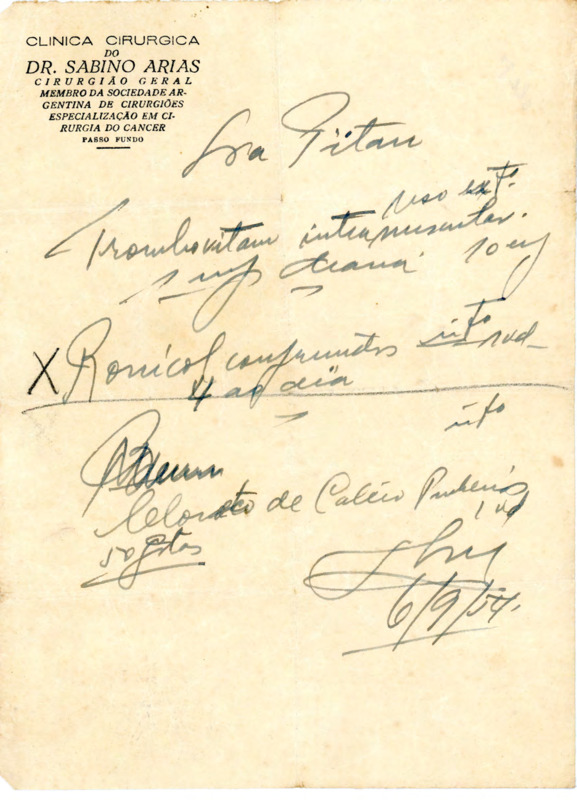 CLINICA CIRURGICA
DO
DR. SABINO ARIAS
CIRURGIÃO GERAL
MEMBRO DA SOCIEDADE AR-
GENTINA DE CIRURGIÕES
ESPECIALIZAÇÃO EM CI-
RURGIA DO CANCER
PASSO FUNDO
Sra Pitan
Uso ext.
Trombovitam intramuscular.
1 inj diaria 10 inj
into
X Ronicol comprimidos 1 vd
4 ao dia
into
Clorato de Calcio Pinheiros
1 vd
50 gotas
6/9/54.